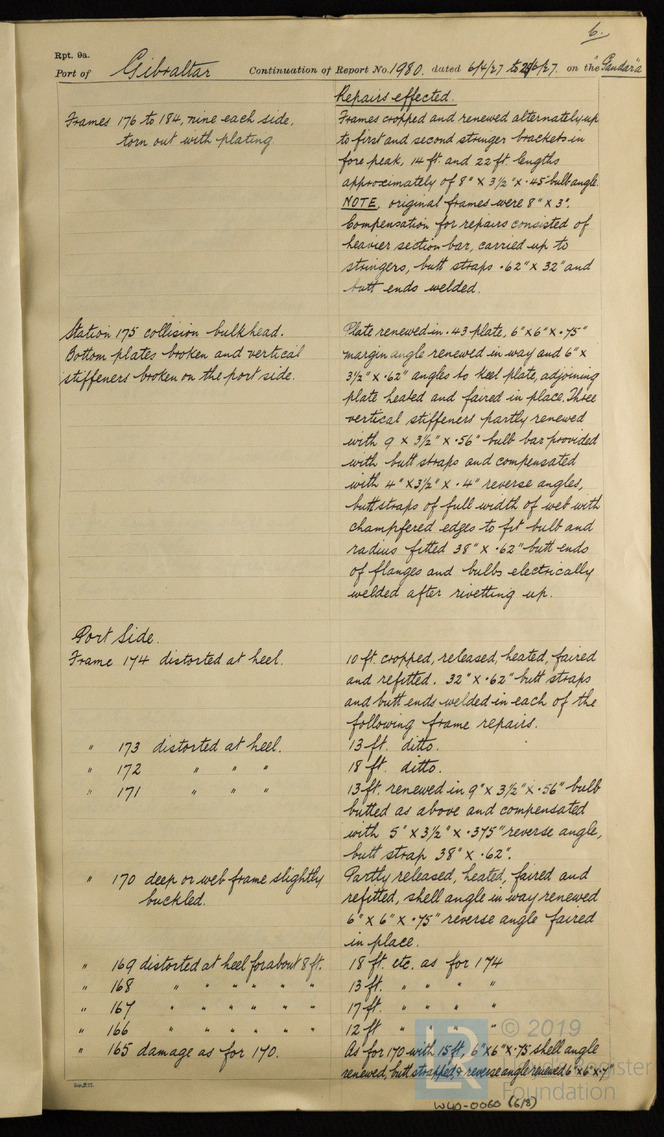 6.
Rpt. 9a.
Port of Gibraltar Continuation of Report No. 1980. dated 6/4/27 to 29/6/27. on the "Gandara"
Repairs effected.
Frames 176 to 184, nine each side,
torn out with plating.
Frames cropped and renewed alternately up
to first and second stringer brackets in
fore peak, 14 ft. and 22 ft. lengths
approximately of 8" X 3½" X .45" bulb angle.
NOTE, original frames were 8" X 3".
Compensation for repairs consisted of
heavier section bar, carried up to
stringers, butt straps .62" X 32" and
butt ends welded.
Station 175 collision bulkhead.
Bottom plates broken and vertical
stiffeners broken on the port side.
Plate renewed in .43 plate, 6"x6"x.75"
margin angle renewed in way and 6" x
3½" x .62" angles to keel plate, adjoining
plate heated and faired in place. Three
vertical stiffeners partly renewed
with 9 x 3½" x .56" bulb bar provided
with butt straps and compensated
with 4" X3½" x .4" reverse angles,
butt straps of full width of web with
champfered edges to fit bulb and
radius fitted 38" X .62" butt ends
of flanges and bulbs electrically
welded after rivetting up.
Port Side.
Frame 174 distorted at heel.
10 ft. cropped, released, heated, faired
and refitted. 32" X .62" butt straps
and butt ends welded in each of the
following frame repairs.
" 173 distorted at heel.
13 ft. ditto.
" 172 " " "
18 ft. ditto.
" 171 " " "
13 ft. renewed in 9" x 3½" x .56" bulb
butted as above and compensated
with 5" X 3½" x .375" reverse angle,
butt strap 38" X .62".
" 170 deep or web frame slightly
buckled.
Partly released, heated, faired and
refitted, shell angle in way renewed
6" x 6" x .75" reverse angle faired
in place.
" 169 distorted at heel for about 8 ft.
18 ft. etc. as for 174
" 168 " " " " " "
13 ft. " " " "
" 167 " " " " " "
17 ft. " " " "
" 166 " " " " " "
12 ft " " " "
" 165 damage as for 170.
As for 170 with 15 ft, 6"x6"x.75 shell angle
renewed, butt strapped, & reverse angle renewed 6"x6"x.7"
© 2019
Lloyd's Register
Foundation
LR
W40-0060 (6/8)